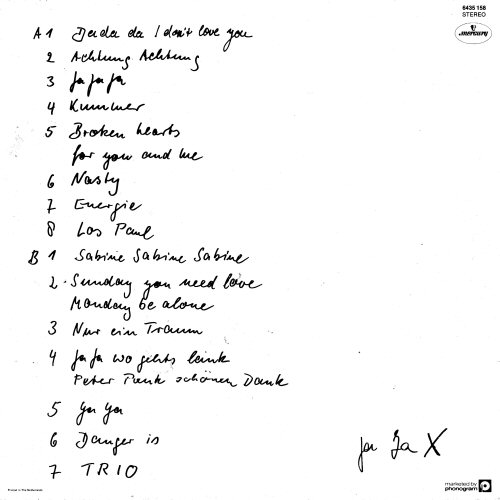 6435 158
STEREO
mercury
A 1 Da da da I don't love you
2 Achtung Achtung
3 Ja Ja Ja
4 Kummer
5 Broken hearts
for you and me
6 Nasty
7 Energie
8 Los Paul
B 1 Sabine Sabine Sabine
2 Sunday you need love
Monday be alone
3 Nur ein Traum
4 Ja Ja wo gehts lank
Peter Pank schönen Dank
5 Ya Ya
6 Danger is
7 TRIO
Ja Ja X
Printed in The Netherlands
marketed by
phonogram